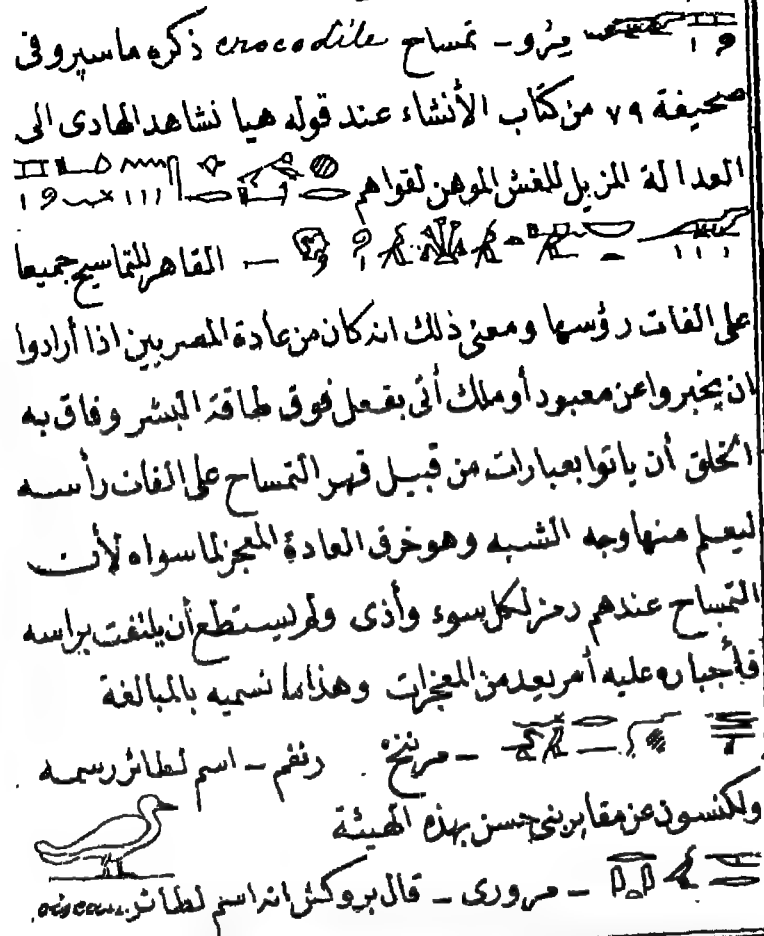 مزو - تمساح crocodile ذكره ماسپرو فى
صحيفة ٧٩ من كتاب الأنشاء عند قوله هيا نشاهد الهادى الى
العدالة المزيل للغش الموهن لقواهم
— القاهر للتماسيح جميعا
على الفات رؤسها ومعنى ذلك انه كان من عادة المصريين اذا أرادوا
ان يخبروا عن معبود أو ملك أتى بفعل فوق طاقة البشر وفاق به
الخلق أن ياتوا بعبارات من قبيل قهر التمساح على الفات رأسه
ليعلم منها وجه الشبه وهو خرق العادة المعجز لما سواه لأن
التمساح عندهم رمز لكل سوء وأذى ولم يستطع أن يلتفت براسه
فأجباره عليه أمر يعد من المعجزات وهذا ما نسميه بالمبالغة
- مرنخ رنفم - اسم لطائر رسمه
ولكنسون عن مقابر بنى حسن بهذه الهيئة
- مرورى - قال بروكش انه اسم لطائر oiseau